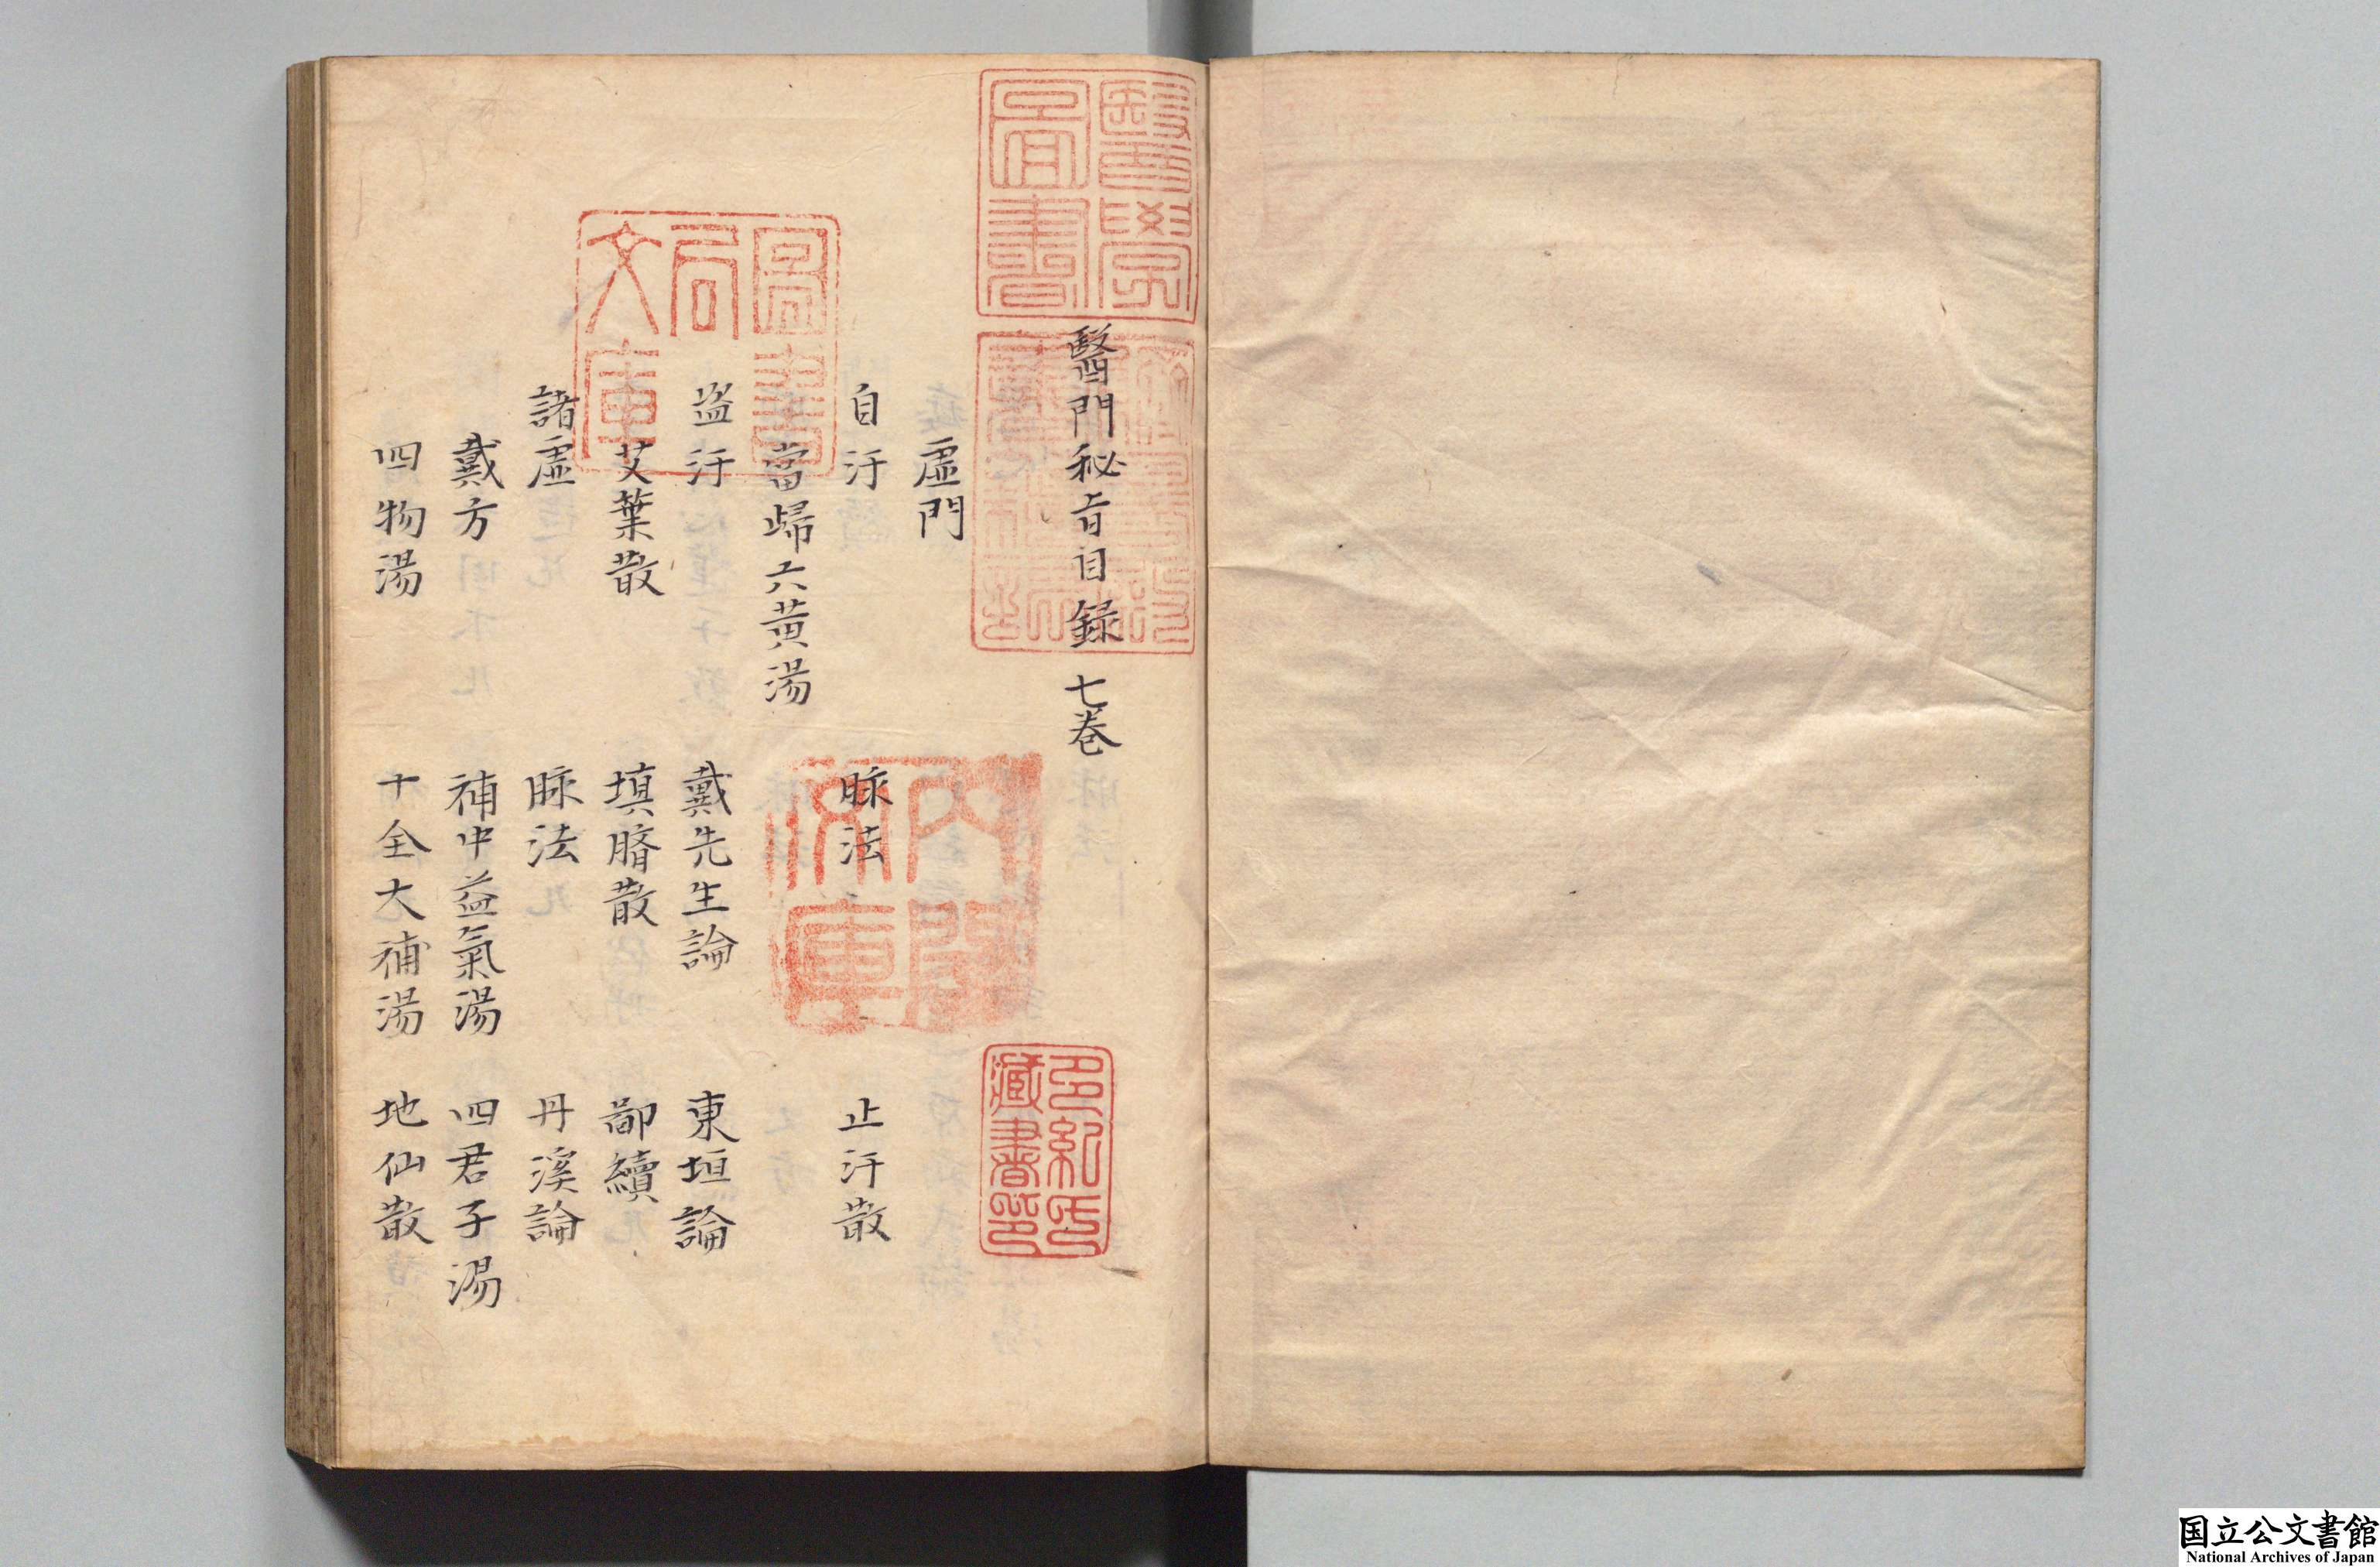 醫門秘旨目録 七巻
虛門
自汗 脉法 止汗散
當歸六黃湯
盗汗 戴先生論 東垣論
艾葉散 填臍散 鄙續
諸虛 脉法 丹溪論
戴方 補中益氣湯 四君子湯
四物湯 十全大補湯 地仙散
醫學圖書
圖書局文庫
內閣文庫
多紀氏藏書印
国立公文書館
National Archives of Japan